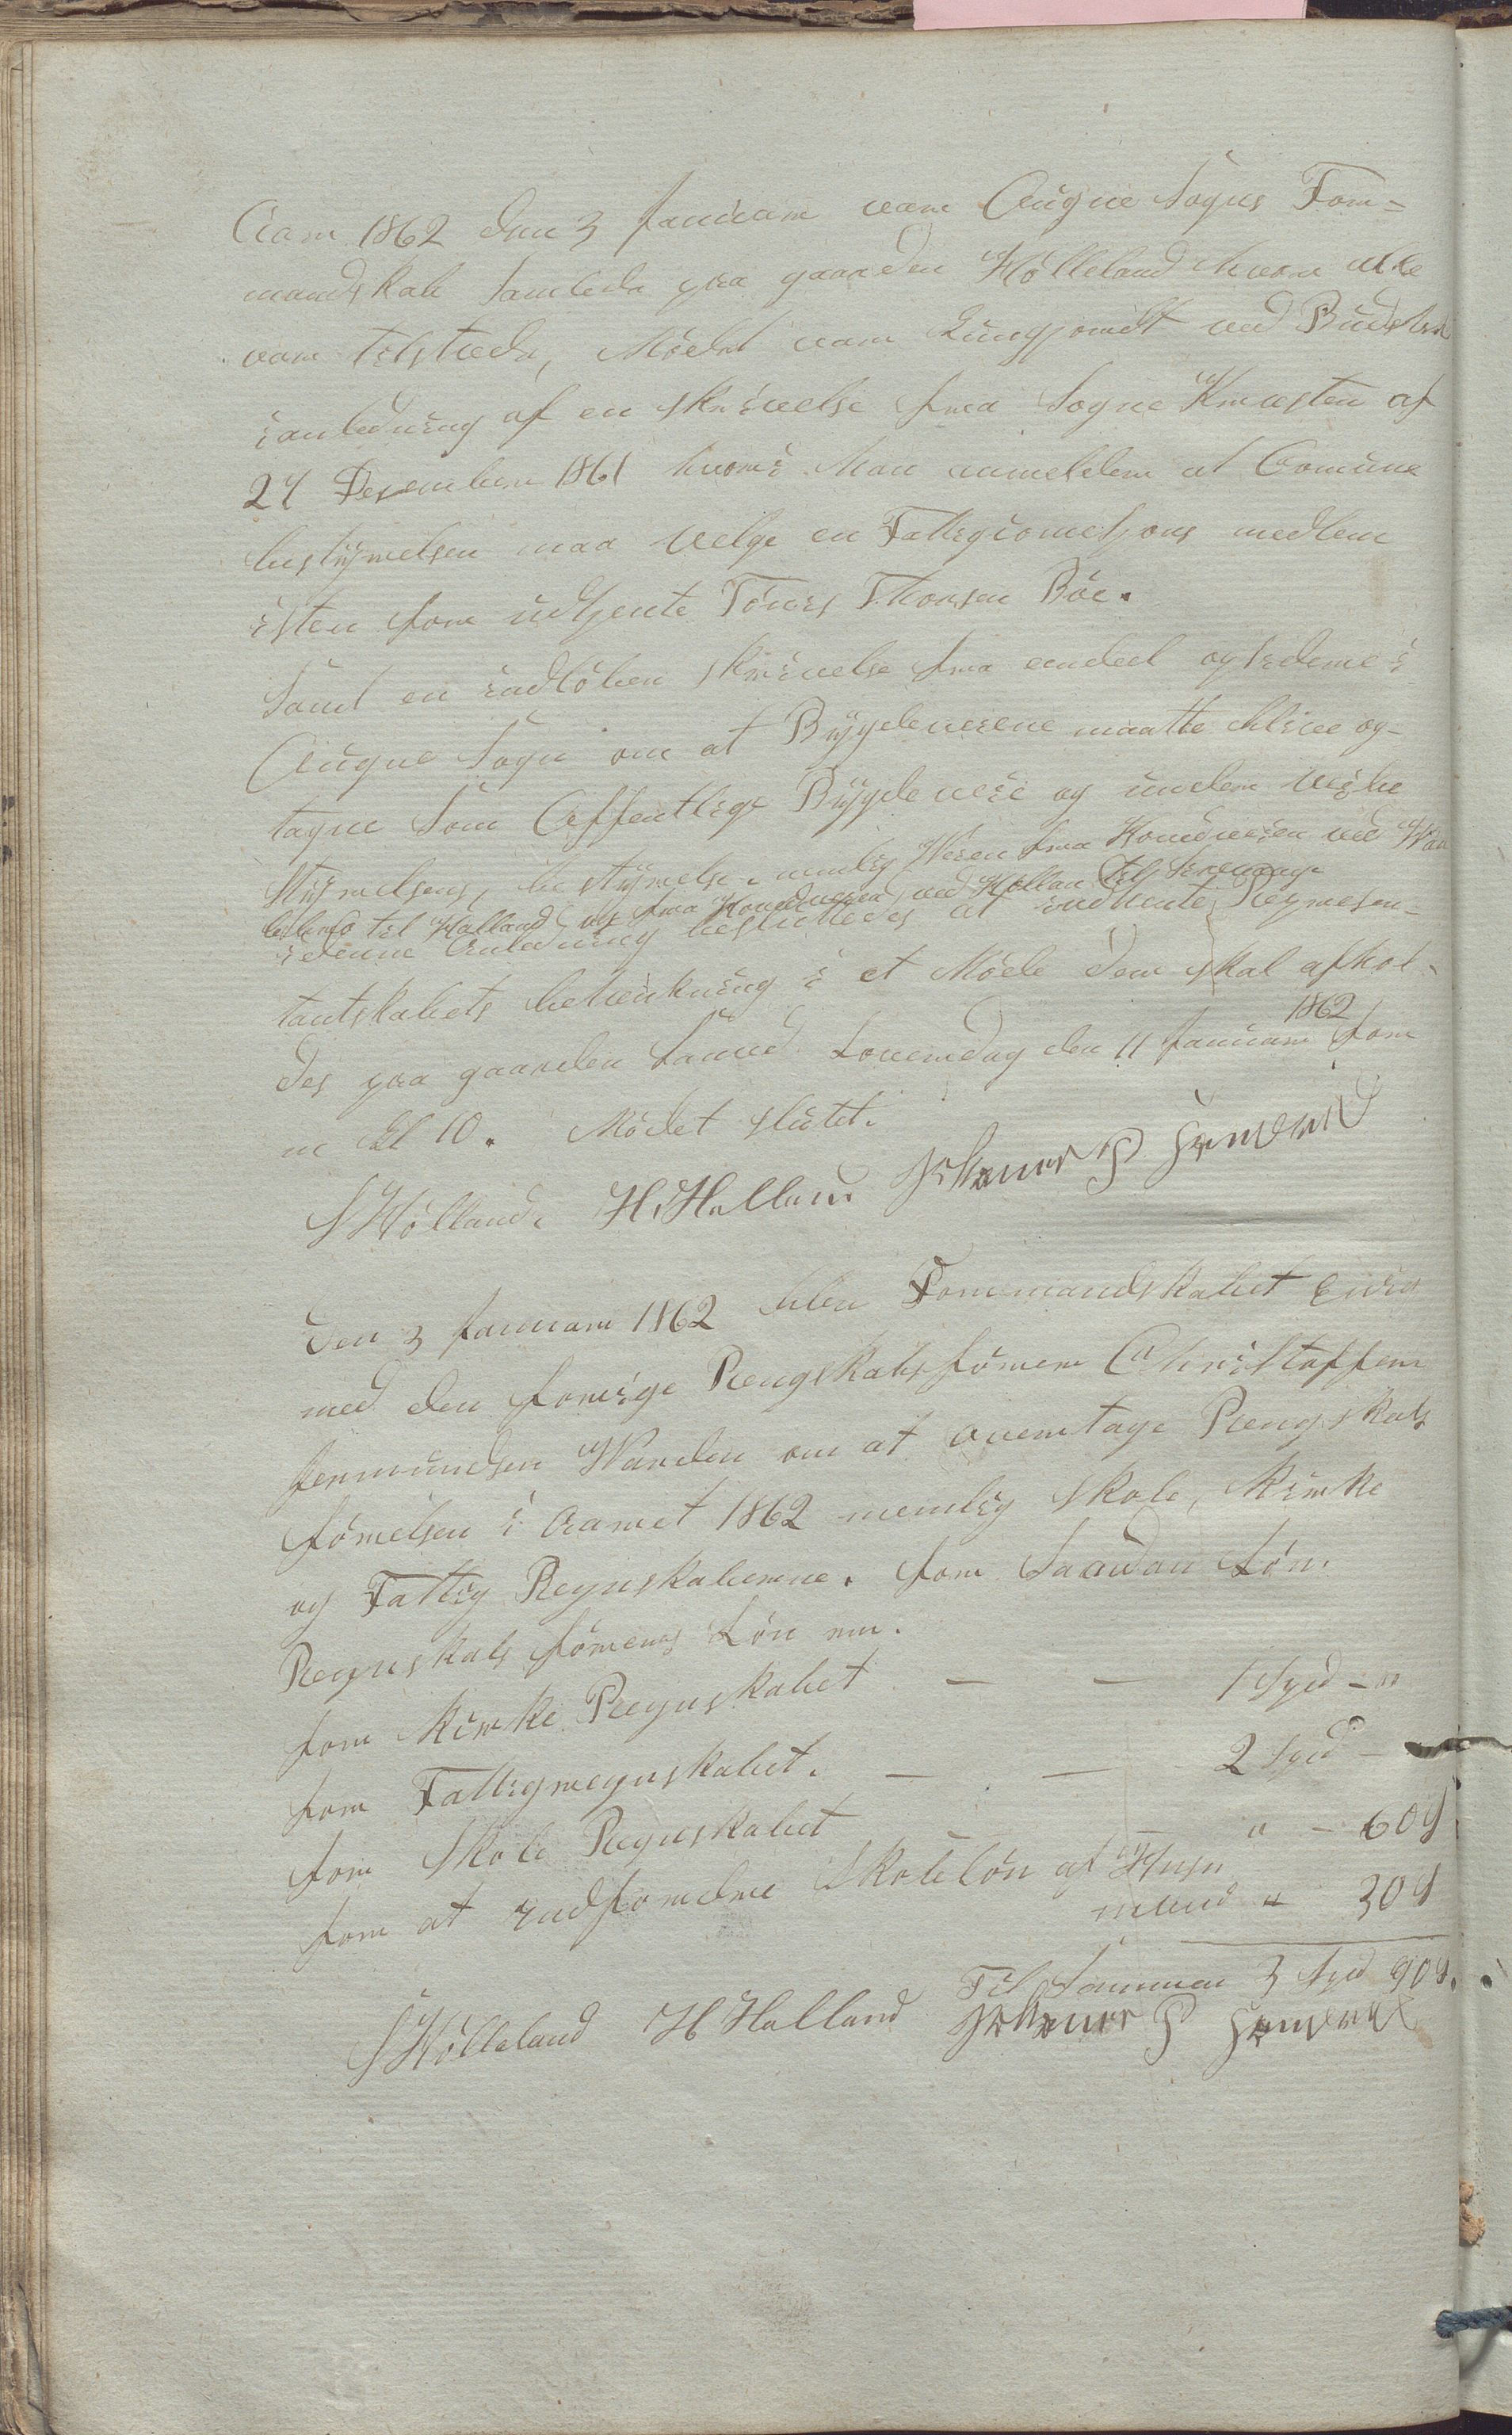 Aar 1862 den 3 Januar var Augne Sogns For-
mandskab Samlede paa gaarden Hölleland hvor alle
var tilstede, Mödet var Kungjordt ved Budstik
i anledning af en skrivelse fra Sogne Presten af
24 Desember 1861 hvori Man anmelder at Comune
bestyrelsen maa velge en Fattigcomesjons medlem
isten for udtjente Tönes Thorsen Böe.
Samt en indlöben skrivelse fra endeel opsidere i
Augne Sogn om at Bygdeveiene maatte blive op-
tagne Som Offentlige Bygdeveie og under veibe
styrelsens, bestyrelse. nemlig Veien fra Hovdveien ved
til Halland og fra Hovedveien ved Hollan til
i denne Anledning besluttedes at indhente Represen-
tantskabets betenkning i et Möde Som skal afhol-
des paa gaarden Laurd Löverdag den 11 Januar 1862 for
m Kl 10. Mödet slutet.
S Hölland. H. Halland Johannes P
Den 3 Januar 1862 blev Formandskabet Enig
med den forrige Rengskabsförer Christoffer
Jermundsen om at overtage Rengskabs
förelsen i Aaret 1862 nemlig Skole, Kirke
og Fattig Regnskaberne. for Saadan Lön.
Regnskabs förerens Lön er.
for Kirke Regnskabet — — 1 Spd - "
for Fattigregnskabet. — — 2 Spd -
for Skole Regnskabet " - 60 s
for at indfordre Skolelön af Hus
mend " 30 s
Til Sammen 3 Spd 90 s.
S Hölleland H Halland Johannes P